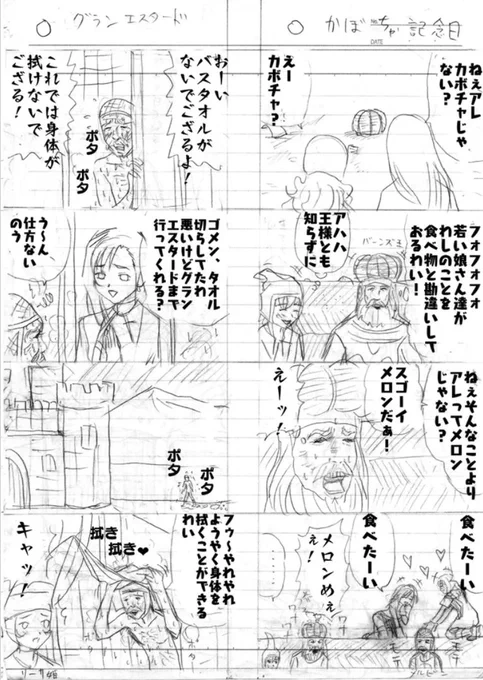 かぼちゃ記念日
ねぇアレ
カボチャじゃ
ない?
えー
カボチャ?
フォフォフォ
若い娘さん達が
わしのことを
食べ物と勘違いして
おるわい!
バーンズ王
アハハ
王様とも
知らずに
ねぇそんなことより
アレってメロン
じゃない?
スゴーイ
メロンだぁ!
えーッ!
食べたーい
食べたーい
メロンめぇ
ぇ!
モテ
モテ
メルビン
グランエスタード
おーい
バスタオルが
ないでござるよ!
これでは身体が
拭けないで
ござる!
ポタ
ポタ
ゴメン、タオル
切らしてたわ
悪いけどグラン
エスタードまで
行ってくれる?
う〜ん
仕方ない
のう
ポタ
ポタ
フゥ〜やれやれ
ようやく身体を
拭くことができる
わい
拭き
拭き♥
キャッ!
リーサ姫